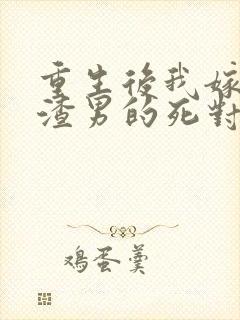 重生後我嫁
渣男的死對
鸡蛋羹